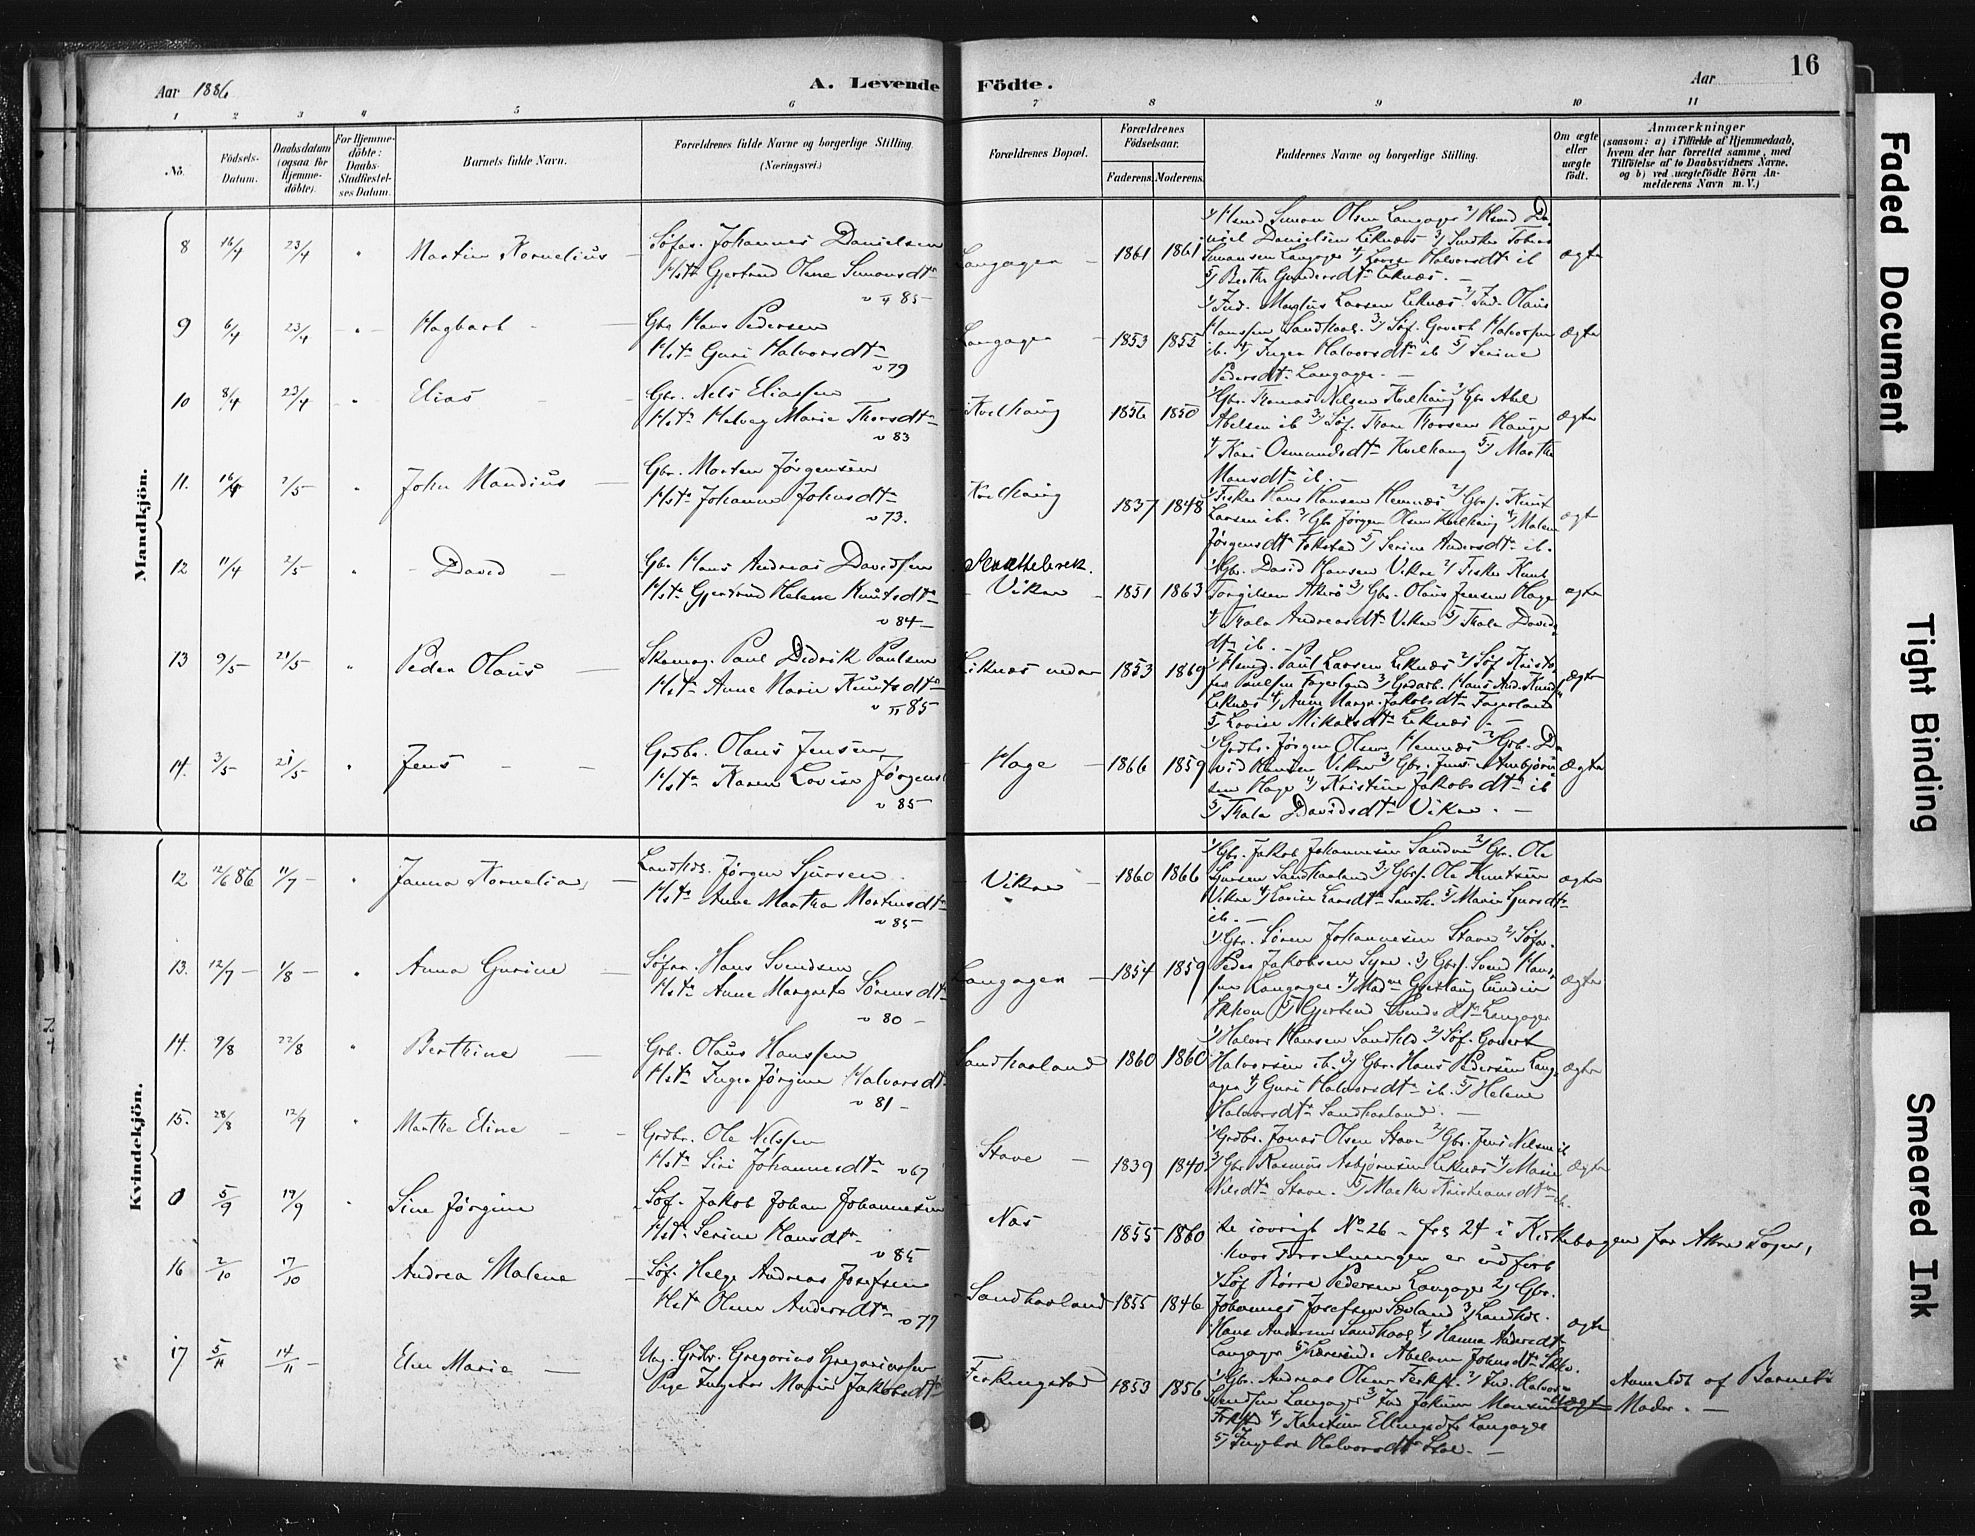 Aar 1886
A. Levende
Födte.
Aar
16
1 2 3 4 5 6 7 8 9 10 11
No.
Födsels-
Datum.
Daabsdatum
(ogsaa for
Hjemme-
döbte).
For Hjemme-
döbte:
Daabs-
Stadfæstel-
ses Datum.
Barnets fulde Navn.
Forældrenes fulde Navne og borgerlige Stilling.
(Næringsvei.)
Forældrenes Bopæl.
Forældrenes
Födselsaar.
Faderens. Moderens.
Faddernes Navne og borgerlige Stilling.
Om ægte
eller
uægte
födt.
Anmærkninger
(saasom: a) i Tilfælde af Hjemmedaab,
hvem der har forrettet samme, med
Tilföielse af to Daabsvidners Navne,
og b) ved uægtefödte Börn An-
melderens Navn m. V.)
Mandkjön.
8 16/4 23/4 " Martin Kornelius
Søfar. Johannes Danielsen
Hst Gjertrud Olene Simonsdtr
v 85
Langager 1861 1861
Simon Olsen Langager
Daniel Danielsen Liknæs 3/ Tobias
Simonsen Langager 4/ Halvorsdtr ib
5/ Berthe Gundersdtr Liknæs.
ægte
9 6/4 23/4 " Hagbart
Gbr Hans Pedersen
Hst Guri Halvorsdtr
v 79
Langager 1853 1855
1/ Ind. Magnus Larsen Liknæs 2/ Ind. Olaus
Hanssen Sandhaal. 3/ Søf. Govert Halvorsen
ib. 4/ Inger Halvorsdtr ib 5/ Serine
Pedersdtr Langager.
Ægte
10 8/4 23/4 " Elias
Gbr. Nels Eliassen
Hst Marie Thorsdtr
v 83
Kvilhaug 1856 1850
1/ Gbr. Thomas Nilsen Kvilhaug 2/ Gbr Abel
Abelsen ib 3/ Søf. Thore Thorsen Hauge
4/ Kari Osmundsdtr Kvilhaug 5/ Marthe
Monsdtr ib.
Ægte
11. 16/4 2/5 " John Mandius
Gbr. Morten Jørgensen
Hst Johanne Johnsdtr
v 73.
Kvilhaug 1837 1848
1/ Fisker Hans Hansen Hemnæs 2/ Gbrs. Knut
Larsen ib. 3/ Gbr Jørgen Olsen Kvilhaug 4/ Malene
Jørgensdtr Tokstad 5/ Serine Andersdtr ib.
Ægt
12 11/4 2/5 " David
Gbr. Hans Andreas Davidsen
Hst Gjertrud Helene Knutsdtr
v 84
Vikre 1851 1863
1/ Gbr. David Hansen Vikre 2/ Fisker Knut
Torgilsen Akrø 3/ Gbr. Olaus Jensen Hage
4/ Thala Andreasdtr Vikre 5/ Thala Davids-
dtr ib.
ægte
13 9/5 21/5 " Peder Olaus
Skomag. Paul Didrik Paulsen
Hst Anne Marie Knutsdtr
v 85
Liknæs nedre 1853 1869
1/ Paul Larsen Liknæs 2/ Søf Kristo-
fer Paulsen Fagerland 3/ Hans And. Knuds
Liknæs 4/ Anne Margr. Jakobsdtr Fagerland
5/ Lovise Mikalsdtr Liknæs
ægte
14. 3/5 21/5 " Jens
Grdbr. Olaus Jensen
Hst Karen Lovise Jørgens
v 85
Hage 1866 1859
1/ Grdbr. Jørgen Olsen Hemnæs 2/ Grb. Da
vid Hansen Vikre 3/ Gbr. Jens Asbjørn
sen Hage 4/ Kristine Jakobsdtr ib
5/ Thala Davidsdtr Vikre.
Ægte
Kvindekjön.
12 12/6 86 11/7 " Janna Kornelia
Landhdl. Jørgen Sjursen
Hst Anne Martha Mortensdtr
v 85
Vikre 1860 1866
1/ Gbr. Jakob Johannesen Sandve 2/ Gbr. Ole
Sjursen Sandhaaland 3/ Gbrs. Ole Knutsen
Vikre 4/ Lovise Larsdtr Sandh. 5/ Marie Sjursdtr
ib.
ægte
13. 12/7 1/8 " Anna Gurine
Søfar. Hans Svendsen
Hst Anne Margrete Sørensdtr
v 80
Langager 1854 1859
1/ Gbr. Søren Johannesen Stave 2/ Søfar.
Peder Jakobsen Syre. 3/ Gbrs. Svend Hans-
sen Langager 4/ Madm
5/ Gjertrud Svendsdtr Langager
ægte
14. 9/8 22/8 " Berthine
Grb. Olaus Hanssen
Hst Inger Jørgine Halvorsdt
v 81
Sandhaaland 1860 1860
1/ Halvor Hansen Sandhld 2/ Søf. Govert
Halvorsen ib. 3/ Gbr. Hans Pedersen Lang-
ager 4/ Guri Halvorsdtr ib. 5/ Helene
Halvorsdtr Sandhaaland.
Ægte
15. 28/8 12/9 " Marthe Eline
Grdbr. Ole Nilssen
Hst Siri Johannesdtr v 67
Stave 1839 1840
1/ Grdbr. Jonas Olsen Stave 2/ Gbr. Jens Nilsen ib
3/ Gbr Rasmus Asbjørnsen Liknæs 4/ Maren
Nilsdtr Stave. 5/ Marthe Kristiansdtr ib.
Ægte
0 5/9 19/9 " Sine Jørgine
Søf. Jakob Johan Johannesen
Hst. Serine Hansdtr
v 85
Næs 1855 1860
Se iøvrigt No 26 - for 24 i Kirkebogen for Akre Sogn,
hvor Forretningen er udført
16 2/10 17/10 Andrea Malene
Søf. Helge Andreas Josefsen
Hst Oline Andersdtr
v 77
Sandhaaland 1855 1846
1/ Søf Børre Pedersen Langager 2/ Gbr.
Johannes Josefsen Sævland 3/ Landhdl.
Hans Andersen Sandhaal 4/ Hanna Andersdt
Langager 5/ Abelone Johnsdtr
ægte
17 5/11 14/11 Elen Marie
Ung. Grdbr. Gregorius Gregoriussen
Pige Ingebor Marie Jakobsdtr
Ferkingstad 1853 1856
1/ Gbr. Andreas Olsen Ferkst. 2/ Ind. Halvor
Svendsen Langager 3/ Ind Joakim Monsen
Ferkst 4/ Kirstine Ellingsdtr Langager
5/ Ingebor Halvorsdtr Stol.
Uægt
Anmeldt af Barnets
Moder.
Faded Document
Tight Binding
Smeared Ink